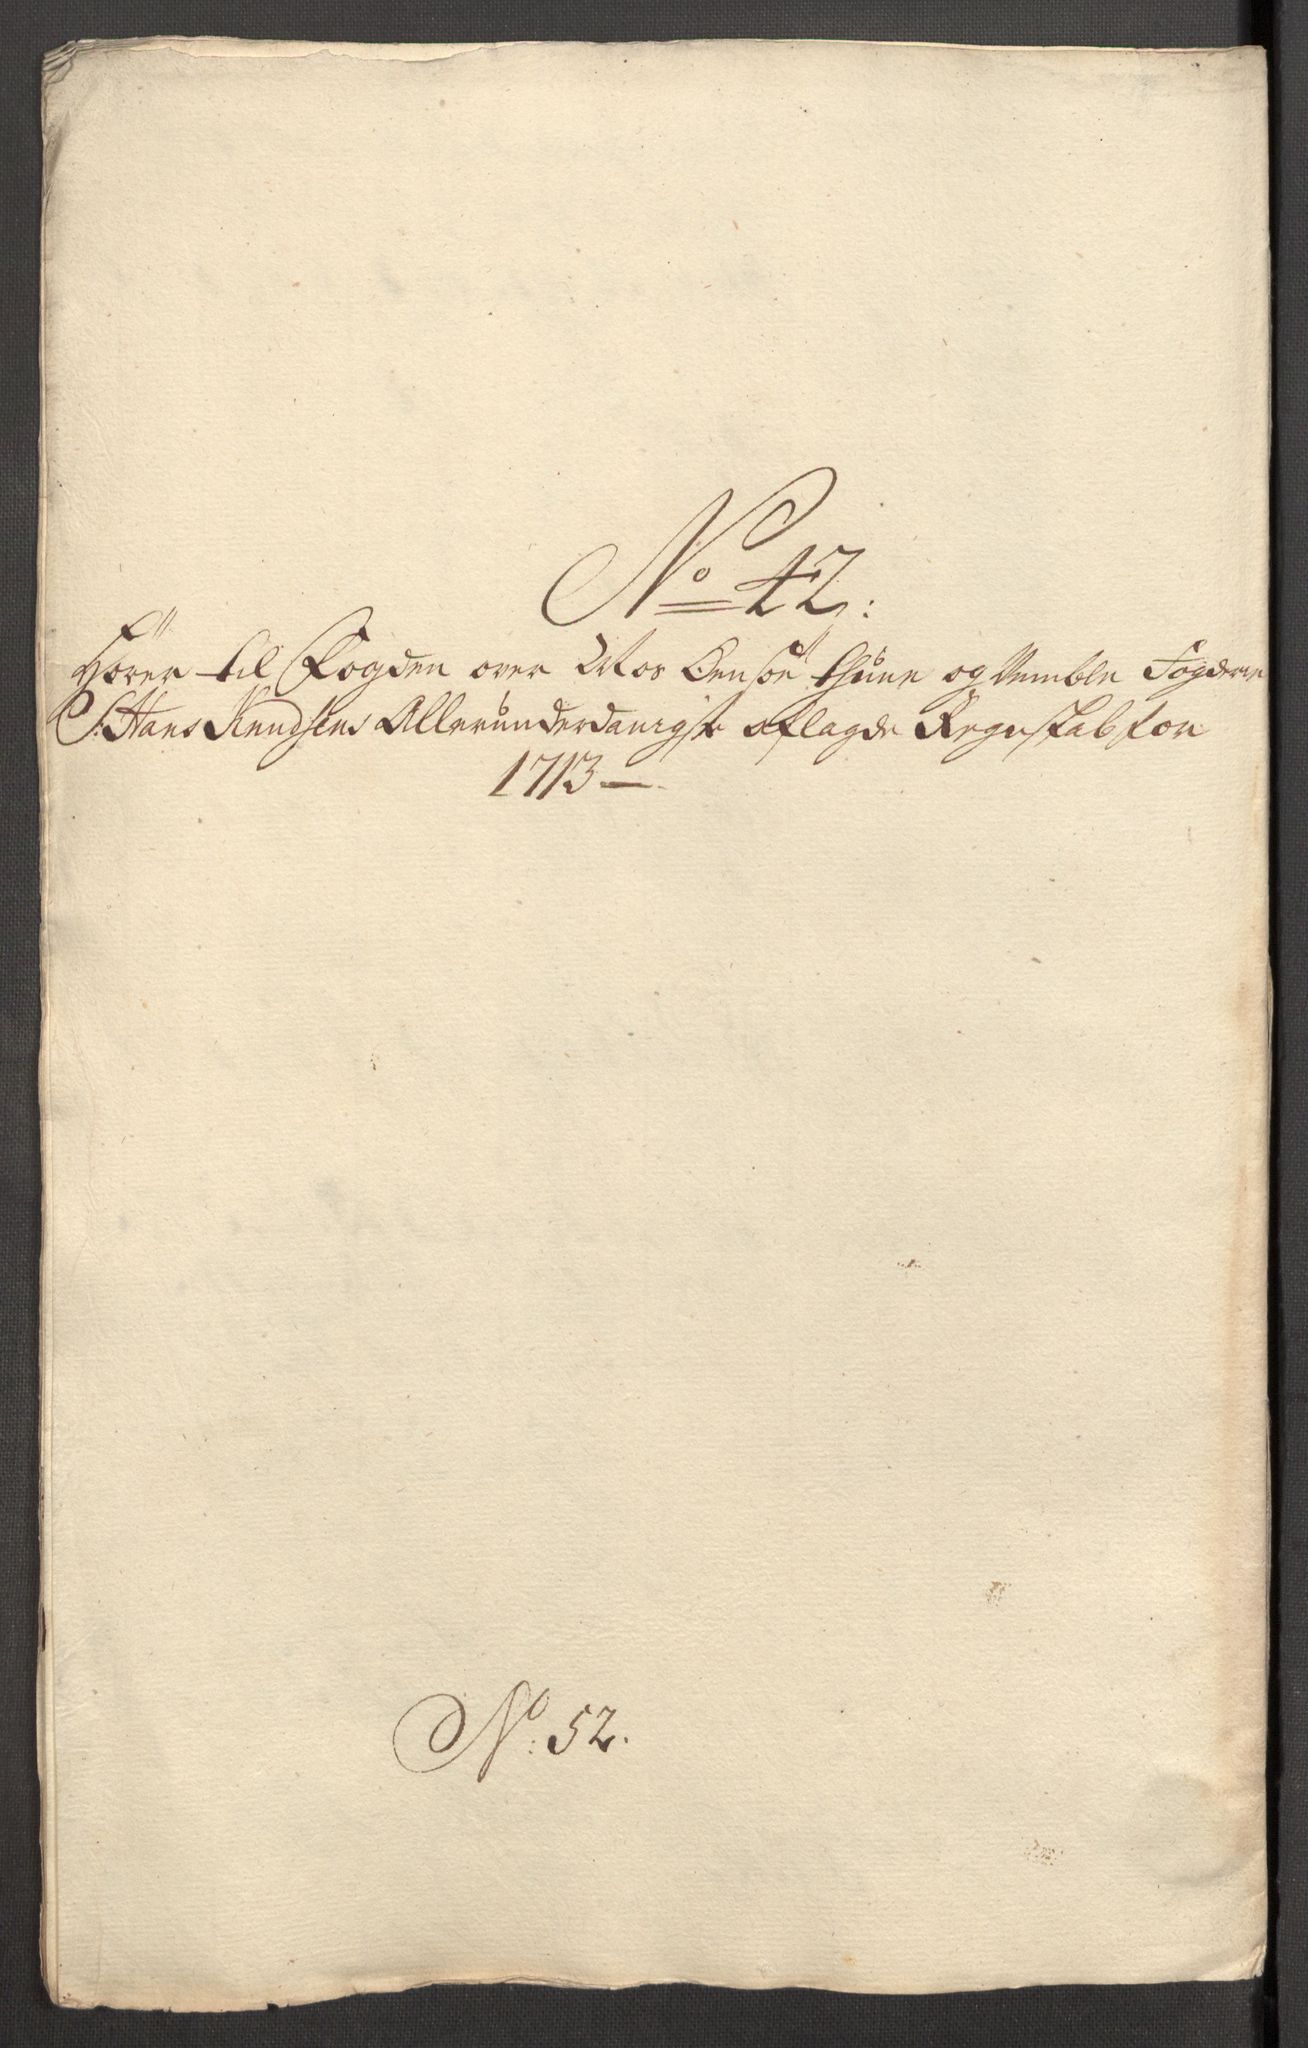 No 42:
Hører til Fogden over Mos Oensöe thüne og Vemble Fogderie
S: Hans Knudsens Allerunderdanigste aflagde Regnskab for
1713 —
No: 52.